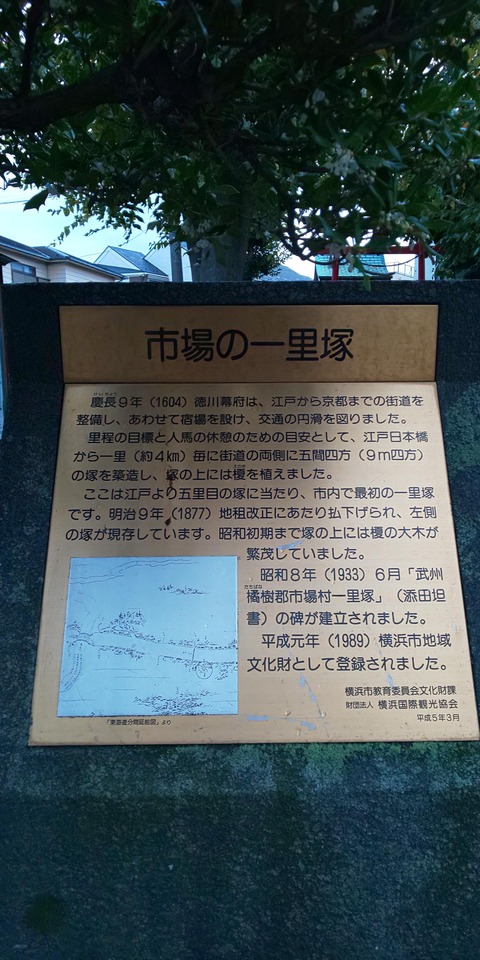 市場の一里塚
慶長9年（1604）徳川幕府は、江戸から京都までの街道を
整備し、あわせて宿場を設け、交通の円滑を図りました。
里程の目標と人馬の休憩のための目安として、江戸日本橋
から一里（約4㎞）毎に街道の両側に五間四方（9m四方）
の塚を築造し、塚の上には榎を植えました。
ここは江戸より五里目の塚に当たり、市内で最初の一里塚
です。明治9年（1877）地租改正にあたり払下げられ、左側
の塚が現存しています。昭和初期まで塚の上には榎の大木が
繁茂していました。
昭和8年（1933）6月「武州
たちばな
橘樹郡市場村一里塚」（添田坦
書）の碑が建立されました。
平成元年（1989）横浜市地域
文化財として登録されました。
「東海道分間延絵図」より
横浜市教育委員会文化財課
財団法人 横浜国際観光協会
平成5年3月